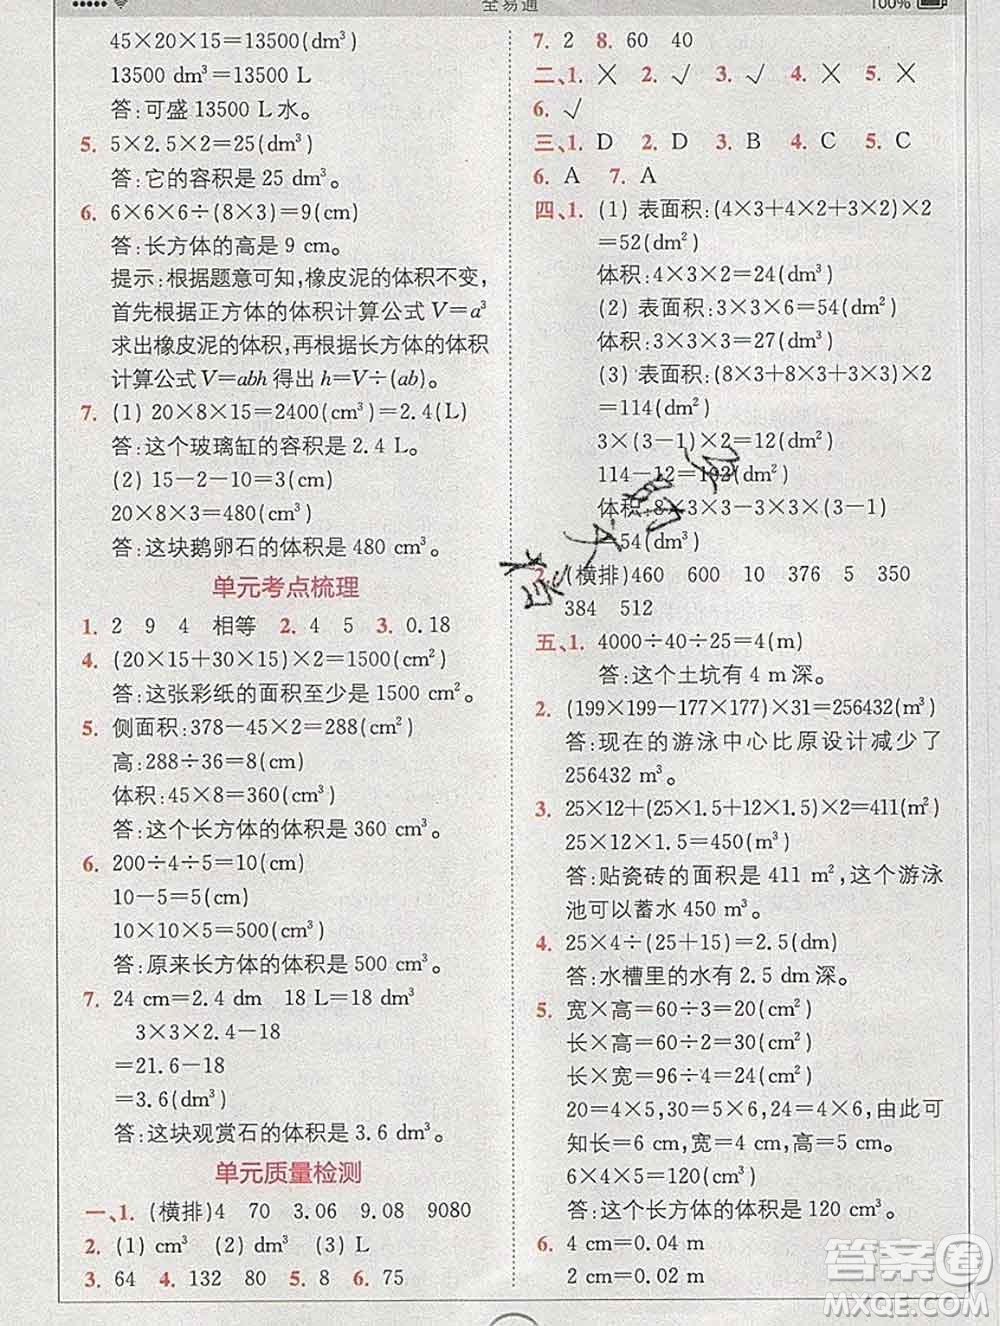 全易通
100%
45×20×15=13500(dm³)
13500 dm³=13500 L
答:可盛 13500 L 水。
5. 5×2.5×2=25(dm³)
答:它的容积是 25 dm³。
6. 6×6×6÷(8×3)=9(cm)
答:长方体的高是 9 cm。
提示:根据题意可知,橡皮泥的体积不变,
首先根据正方体的体积计算公式 V=a³
求出橡皮泥的体积,再根据长方体的体积
计算公式 V=abh 得出 h=V÷(ab)。
7. (1) 20×8×15=2400(cm³)=2.4(L)
答:这个玻璃缸的容积是 2.4 L。
(2) 15-2-10=3(cm)
20×8×3=480(cm³)
答:这块鹅卵石的体积是 480 cm³。
单元考点梳理
1. 2 9 4 相等 2. 4 5 3. 0.18
4. (20×15+30×15)×2=1500(cm²)
答:这张彩纸的面积至少是 1500 cm²。
5. 侧面积:378-45×2=288(cm²)
高:288÷36=8(cm)
体积:45×8=360(cm³)
答:这个长方体的体积是 360 cm³。
6. 200÷4÷5=10(cm)
10-5=5(cm)
10×10×5=500(cm³)
答:原来长方体的体积是 500 cm³。
7. 24 cm=2.4 dm 18 L=18 dm³
3×3×2.4-18
=21.6-18
=3.6(dm³)
答:这块观赏石的体积是 3.6 dm³。
单元质量检测
一、1. (横排)4 70 3.06 9.08 9080
2. (1) cm³ (2) dm³ (3) L
3. 64 4. 132 80 5. 8 6. 75
7. 2 8. 60 40
二、1. × 2. √ 3. √ 4. × 5. ×
6. √
三、1. D 2. D 3. B 4. C 5. C
6. A 7. A
四、1. (1) 表面积:(4×3+4×2+3×2)×2
=52(dm²)
体积:4×3×2=24(dm³)
(2) 表面积:3×3×6=54(dm²)
体积:3×3×3=27(dm³)
(3) 表面积:(8×3+8×3+3×3)×2
=114(dm²)
3×(3-1)×2=12(dm²)
114-12=102(dm²)
体积:8×3×3-3×3×(3-1)
=54(dm³)
2. (横排)460 600 10 376 5 350
384 512
五、1. 4000÷40÷25=4(m)
答:这个土坑有 4 m 深。
2. (199×199-177×177)×31=256432(m³)
答:现在的游泳中心比原设计减少了
256432 m³。
3. 25×12+(25×1.5+12×1.5)×2=411(m²)
25×12×1.5=450(m³)
答:贴瓷砖的面积是 411 m²,这个游泳
池可以蓄水 450 m³。
4. 25×4÷(25+15)=2.5(dm)
答:水槽里的水有 2.5 dm 深。
5. 宽×高=60÷3=20(cm²)
长×高=60÷2=30(cm²)
长×宽=96÷4=24(cm²)
20=4×5,30=5×6,24=4×6,由此可
知长=6 cm,宽=4 cm,高=5 cm。
6×4×5=120(cm³)
答:这个长方体的体积是 120 cm³。
6. 4 cm=0.04 m
2 cm=0.02 m
答案圈
MXQE.COM